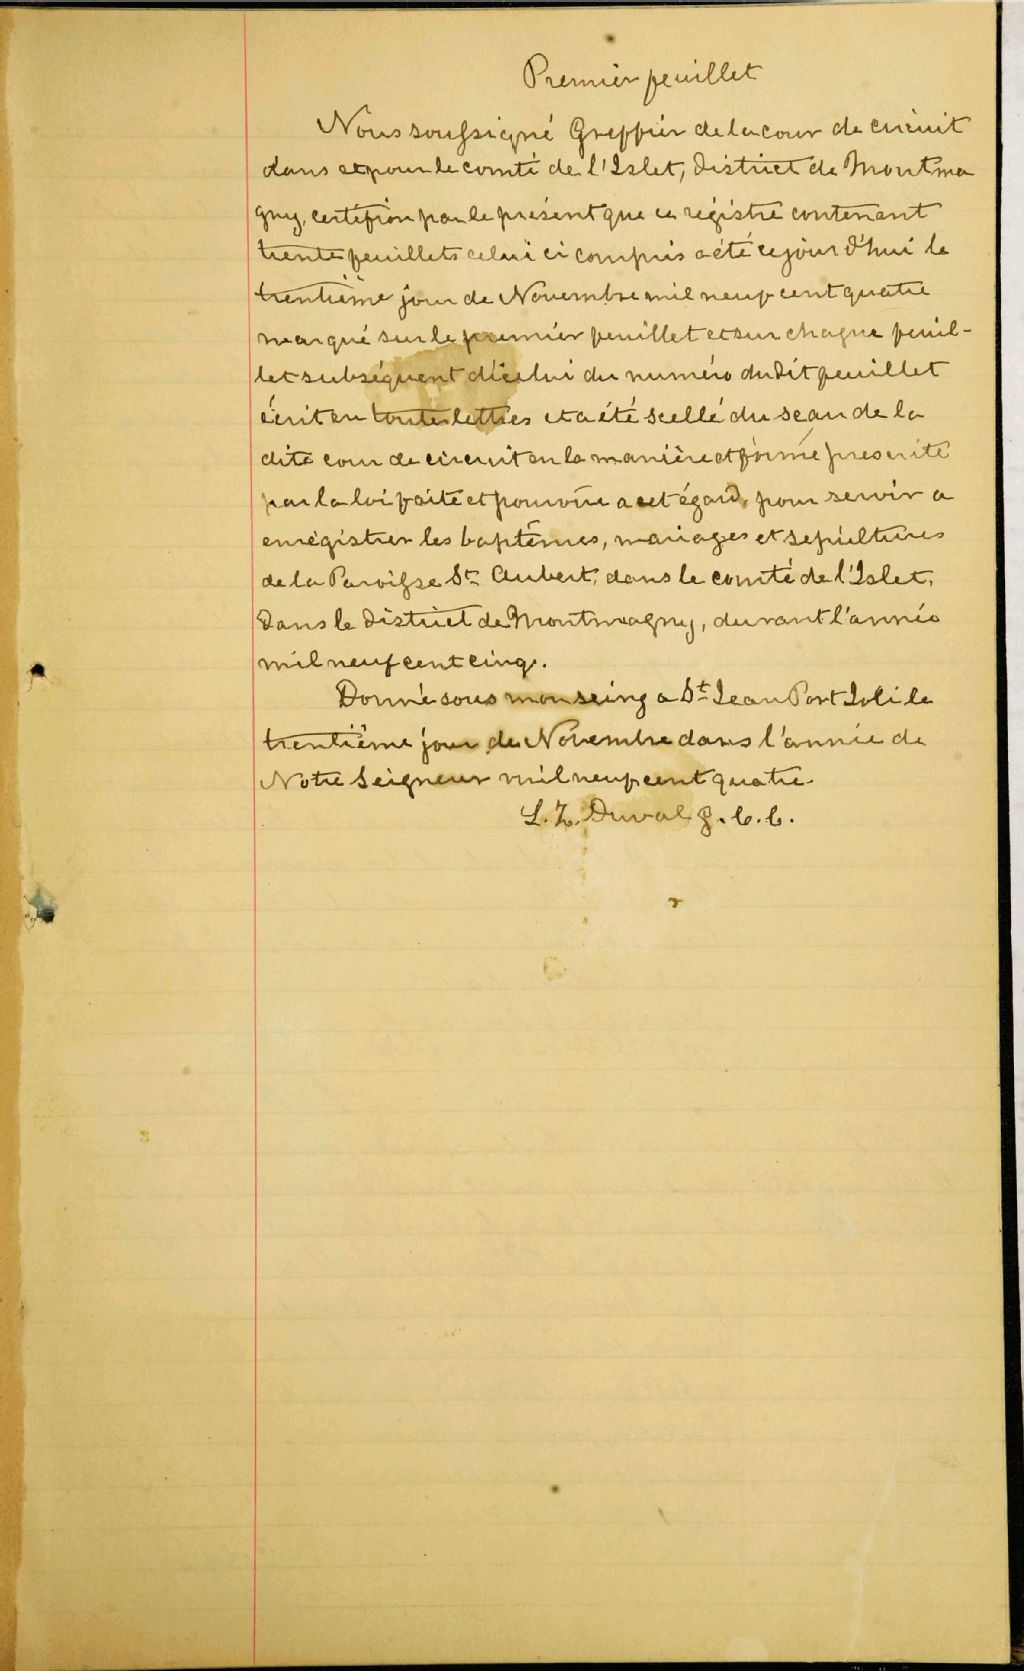 Premier feuillet
Nous soussigné Greffier de la cour de circuit
dans et pour le comté de l'Islet, District de Montma
gny, certifion par le présent que ce régistre contenant
trente feuillets celui ci compris a été ce jour d'hui le
trentième jour de Novembre mil neuf cent quatre
marqué sur le premier feuillet et sur chaque feuil-
let subséquent d'icelui du numéro du Dit feuillet
écrit en toutes lettres et a été scellé du seau de la
dite cour de circuit en la manière et forme prescrite
par la loi faite et pourvue a cet égard, pour servir a
enrégistrer les baptêmes, mariages et sépultures
de la Paroisse St Aubert, dans le comté de l'Islet,
Dans le District de Montmagny, durant l'année
mil neuf cent cinq.
Donné sous mon seing a St Jean Port Joli le
trentième jour de Novembre dans l'année de
Notre Seigneur mil neuf cent quatre.
L. Z. Duval g. c. c.